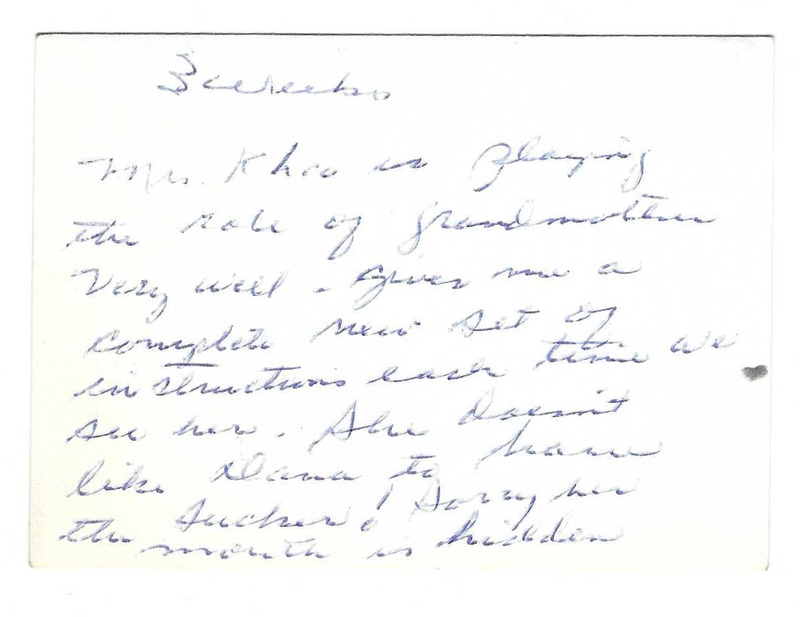 3 weeks
Mrs. Khoo is playing
the role of grandmother
very well - gives me a
complete new set of
instructions each time we
see her. She doesn't
like Dana to have
the sucker! Sorry her
the mouth is hidden